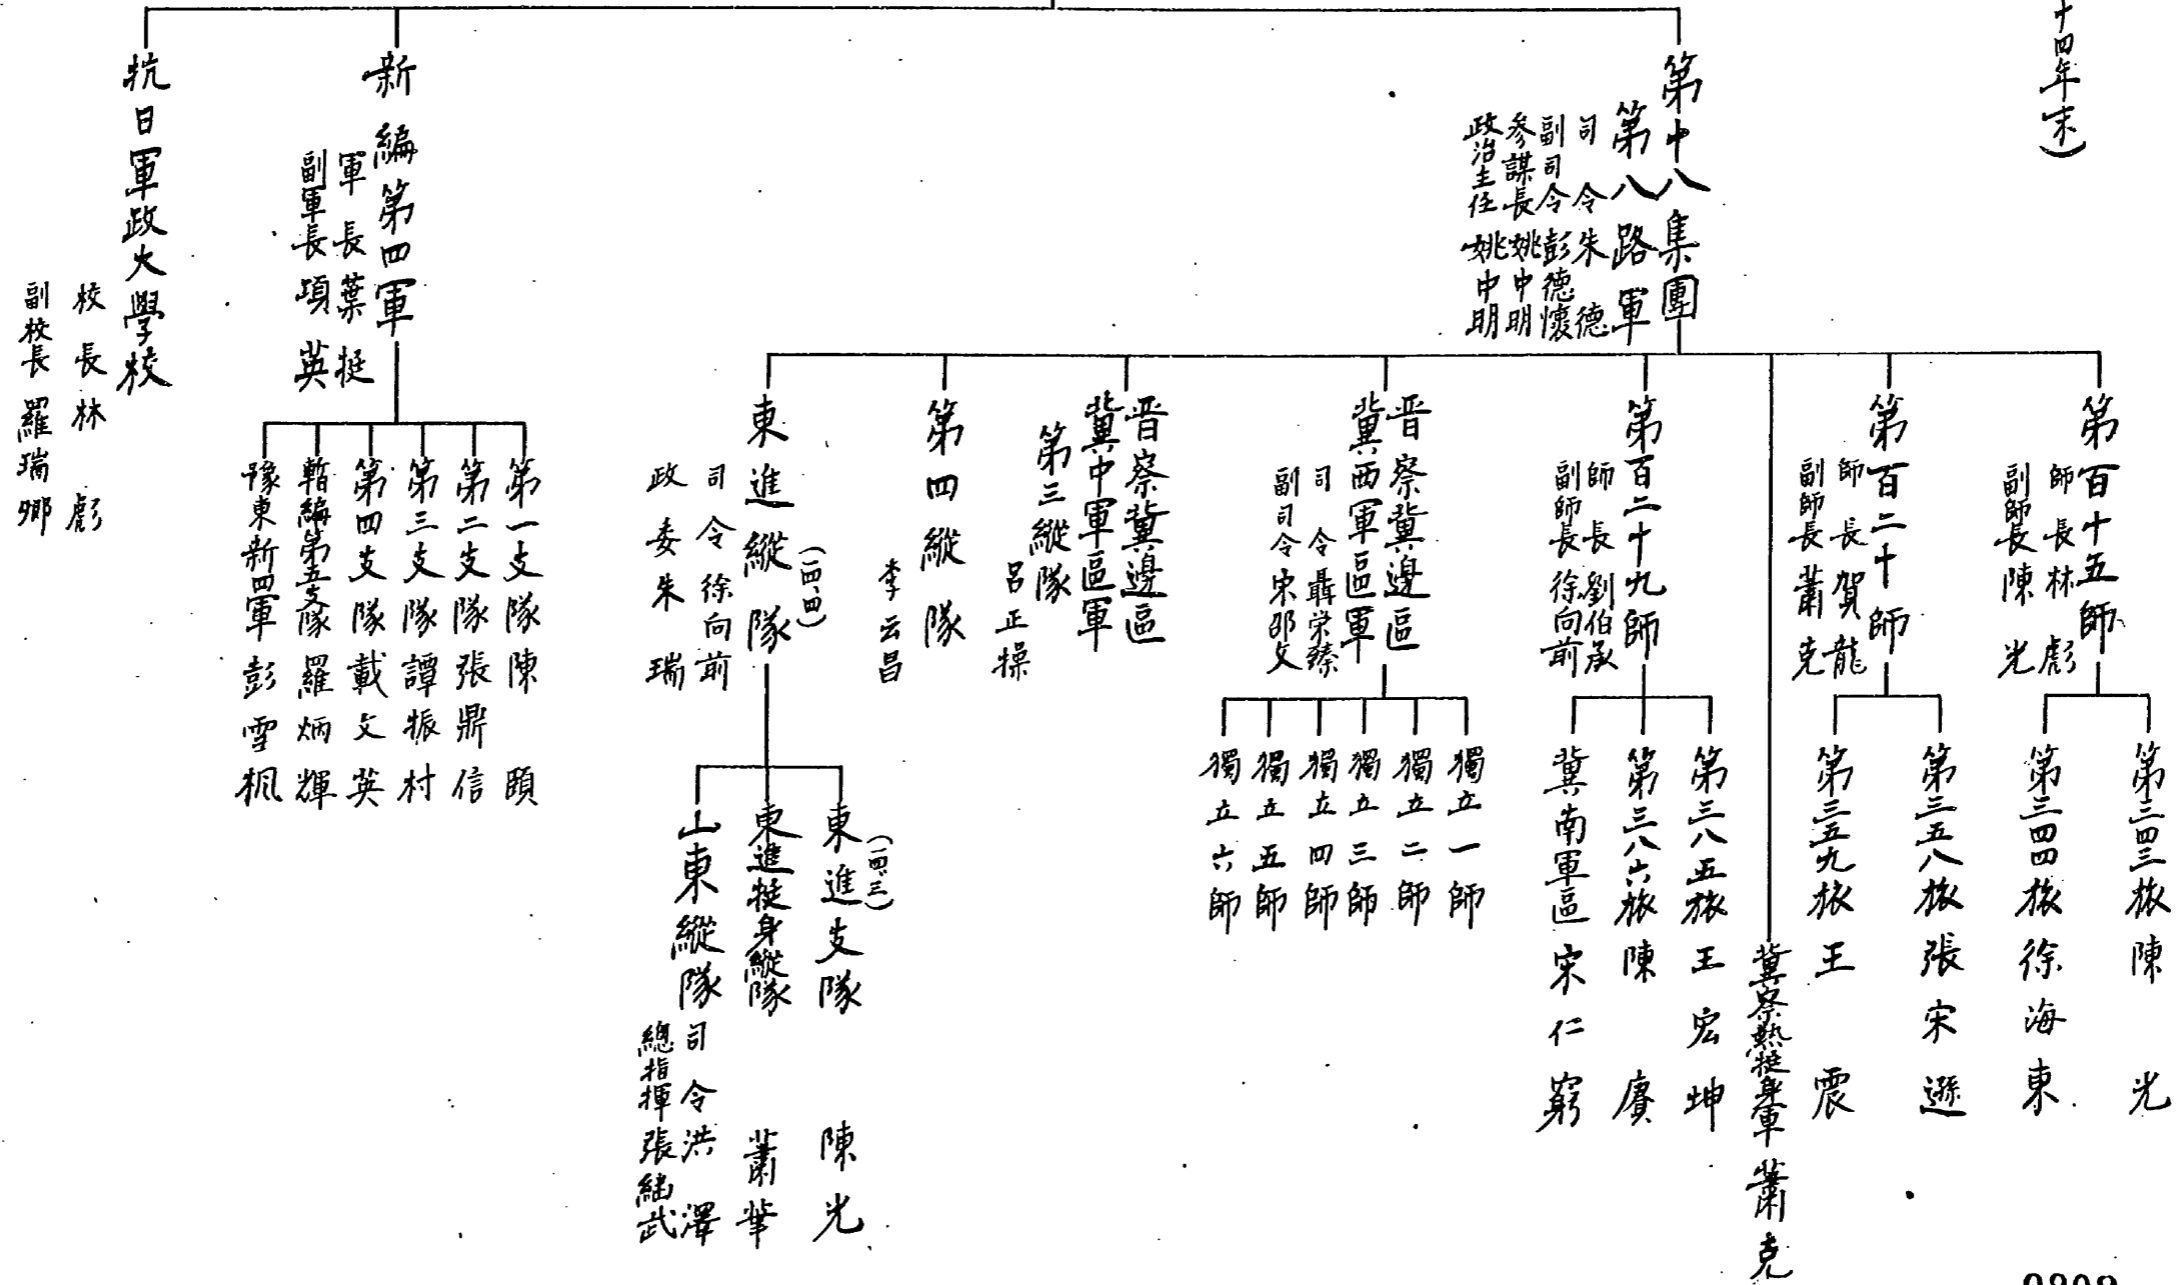 十四年末)
第十八集團
第八路軍
司令朱德
副司令彭德懷
參謀長姚中明
政治主任姚中明
第百十五師
師長林彪
副師長陳光
第三四三旅陳光
第三四四旅徐海東
第百二十師
師長賀龍
副師長蕭克
第三五八旅張宋遜
第三五九旅王震
冀察熱挺身軍蕭克
第百二十九師
師長劉伯承
副師長徐向前
第三八五旅王宏坤
第三八六旅陳賡
冀南軍區宋仁窮
晋察冀邊區
冀西軍區軍
司令聶栄臻
副司令宋邵文
獨立一師
獨立二師
獨立三師
獨立四師
獨立五師
獨立六師
晋察冀邊區
冀中軍區軍
第三縱隊
呂正操
第四縱隊
李云昌
東進縱隊
(一四、四)
司令徐向前
政委朱瑞
東進支隊
(一四、三)
陳光
東進挺身縱隊
蕭華
山東縱隊
司令洪澤
總指揮張経武
新編第四軍
軍長葉挺
副軍長項英
第一支隊陳頤
第二支隊張鼎信
第三支隊譚振村
第四支隊戴文英
暫編第五支隊羅炳輝
豫東新四軍彭雪楓
抗日軍政大學校
校長林彪
副校長羅瑞卿